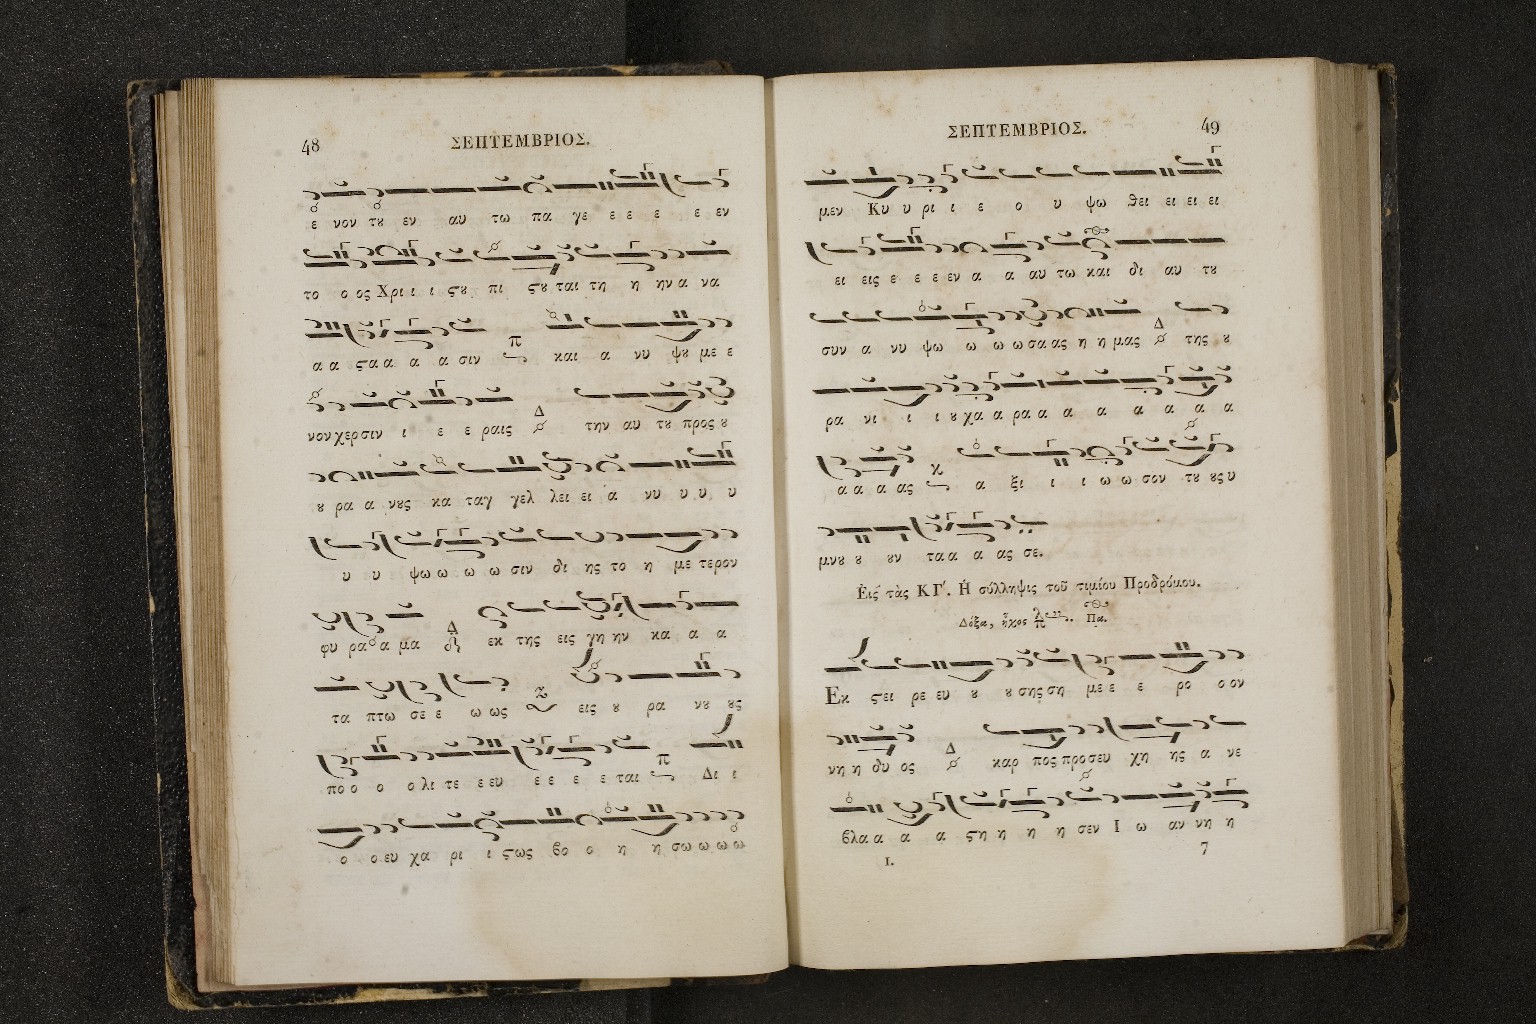 48
ΣΕΠΤΕΜΒΡΙΟΣ.
ε νον τȣ εν αυ τω πα γε ε ε ε ε εν
το ο ος Χρι ι ι ϛȣ πι ϛȣ ται τη η ην α να
α α ϛα α α α σιν π και α νυ ψȣ με ε
νον χερ σιν ι ε ε ραις Δ την αυ τȣ προς ȣ
ȣ ρα α νȣς κα ταγ γελ λει ει α νυ υ υ υ
υ υ ψω ω ω ω σιν δι ης το η με τε ρον
φυ ρα α μα Δ εκ της εις γη ην κα α α
τα πτω σε ε ω ως εις ȣ ρα νȣ ȣς
πο ο ο ο λι τε ε ευ ε ε ε ε ται π Δι ι
ο ο ευ χα ρι ι ϛως βο ο η η σω ω ω ω
ΣΕΠΤΕΜΒΡΙΟΣ.
49
μεν Κυ υ ρι ι ε ο υ ψω θει ει ει ει
ει εις ε ε ε εν α α αυ τω και δι αυ τȣ
συν α νυ ψω ω ω ω σα ας η η μας Δ της ȣ
ρα νι ι ι ȣ χα α ρα α α α α α α α
α α α ας κ α ξι ι ι ω ω σον τȣ ȣς υ
μνȣ ȣ ȣν τα α α ας σε.
Εἰς τὰς ΚΓ΄. Ἡ σύλληψις τοῦ τιμίου Προδρόμου.
Δόξα, ἦχος π Πα.
Εκ ϛει ρε ευ ȣ ȣ σης ση με ε ε ρο ο ον
νη η δυ ος Δ καρ πος προ σευ χη ης α νε
βλα α α α ϛη η η η σεν Ι ω αν νη η
Ι. 7